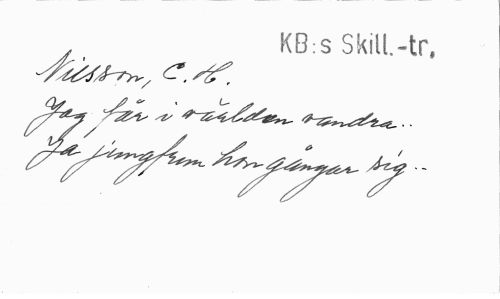 KB:s Skill.-tr.
Nilsson, C. H.
Jag får i världen vandra..
Ja jungfrun hon gångar sig..